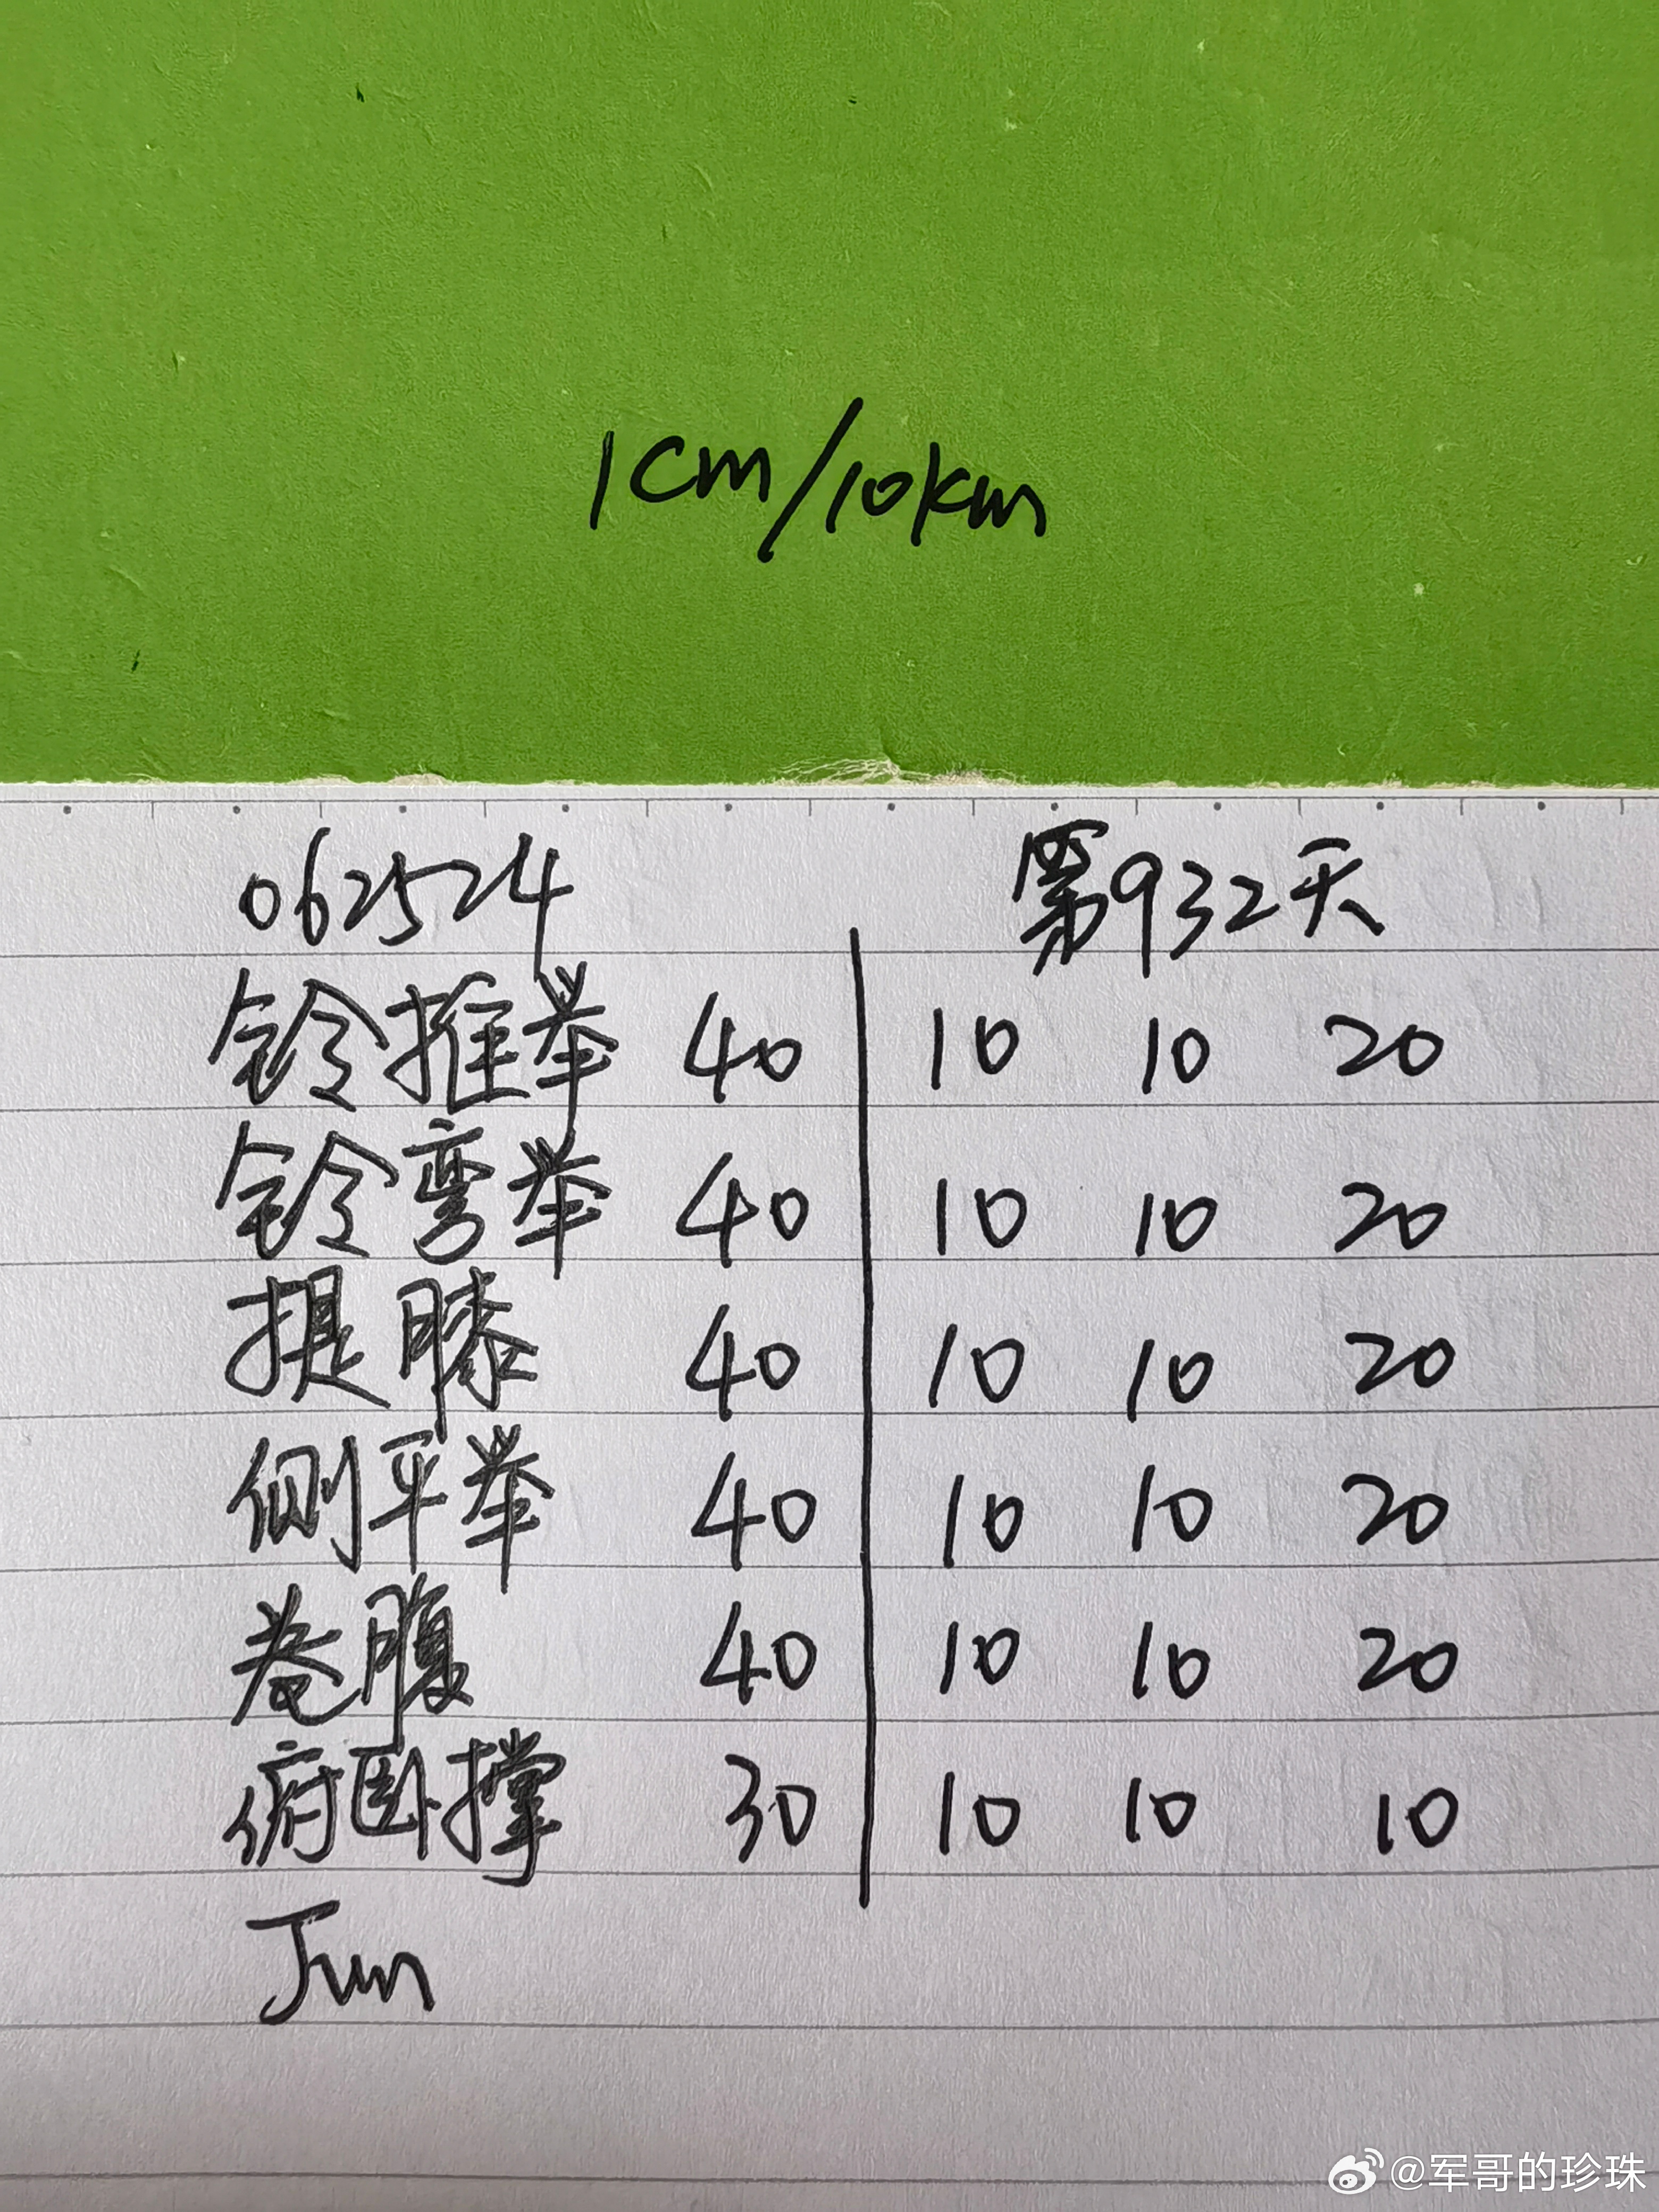 1cm/10km
062524 第932天
铃推举 40 10 10 20
铃弯举 40 10 10 20
提膝 40 10 10 20
侧平举 40 10 10 20
卷腹 40 10 10 20
俯卧撑 30 10 10 10
Jun
@军哥的珍珠